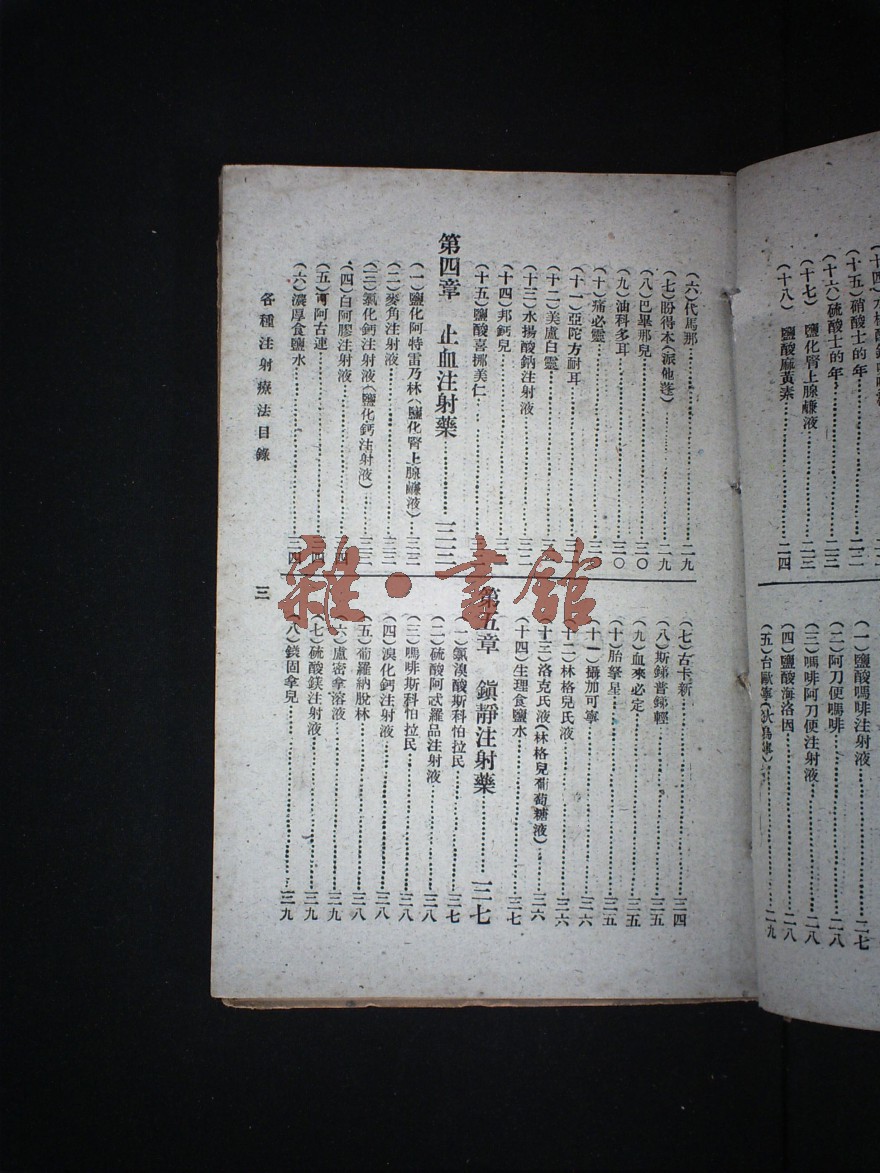 (十五)硝酸士的年
(十六)硫酸士的年……二三
(十七)鹽化腎上腺鹼液……二三
(十八)鹽酸麻黃素……二四
(一)鹽酸嗎啡注射液……二七
(二)阿刀便嗎啡……二八
(三)嗎啡阿刀便注射液……二八
(四)鹽酸海洛因……二八
(五)台歐寧……二九
(六)代馬那……二九
(七)盼得本(派他蓬)……二九
(八)巴畢那兒……三〇
(九)油科多耳……三〇
(十)痛必靈
(十一)亞陀方耐耳
(十二)美盧白靈
(十三)水揚酸鈉注射液
(十四)邦鈣兒
(十五)鹽酸喜挪美仁
第四章 止血注射藥……三三
(一)鹽化阿特雷乃林(鹽化腎上腺鹼液)……三三
(二)麥角注射液……三三
(三)氯化鈣注射液(鹽化鈣注射液)……三三
(四)白阿膠注射液
(五)可阿古連……三四
(六)濃厚食鹽水……三四
(七)古卡新……三四
(八)斯錦普錦輕……三五
(九)血來必定……三五
(十)胎拏星……三五
(十一)攝加可寧……三六
(十二)林格兒氏液……三六
(十三)洛克氏液(林格兒葡萄糖液)……三六
(十四)生理食鹽水……三七
第五章 鎭靜注射藥……三七
(一)氫溴酸斯科怕拉民……三七
(二)硫酸阿忒羅品注射液……三八
(三)嗎啡斯科怕拉民……三八
(四)溴化鈣注射液……三八
(五)葡羅納脫林……三八
(六)盧密拿溶液……三九
(七)硫酸鎂注射液……三九
(八)鎂固拿兒……三九
各種注射療法目錄
三
雜·書館